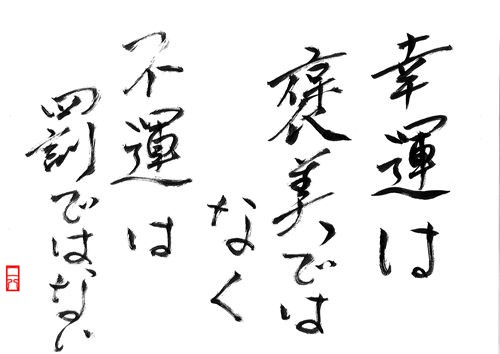 幸運は
褒美では
なく
不運は
罰ではない